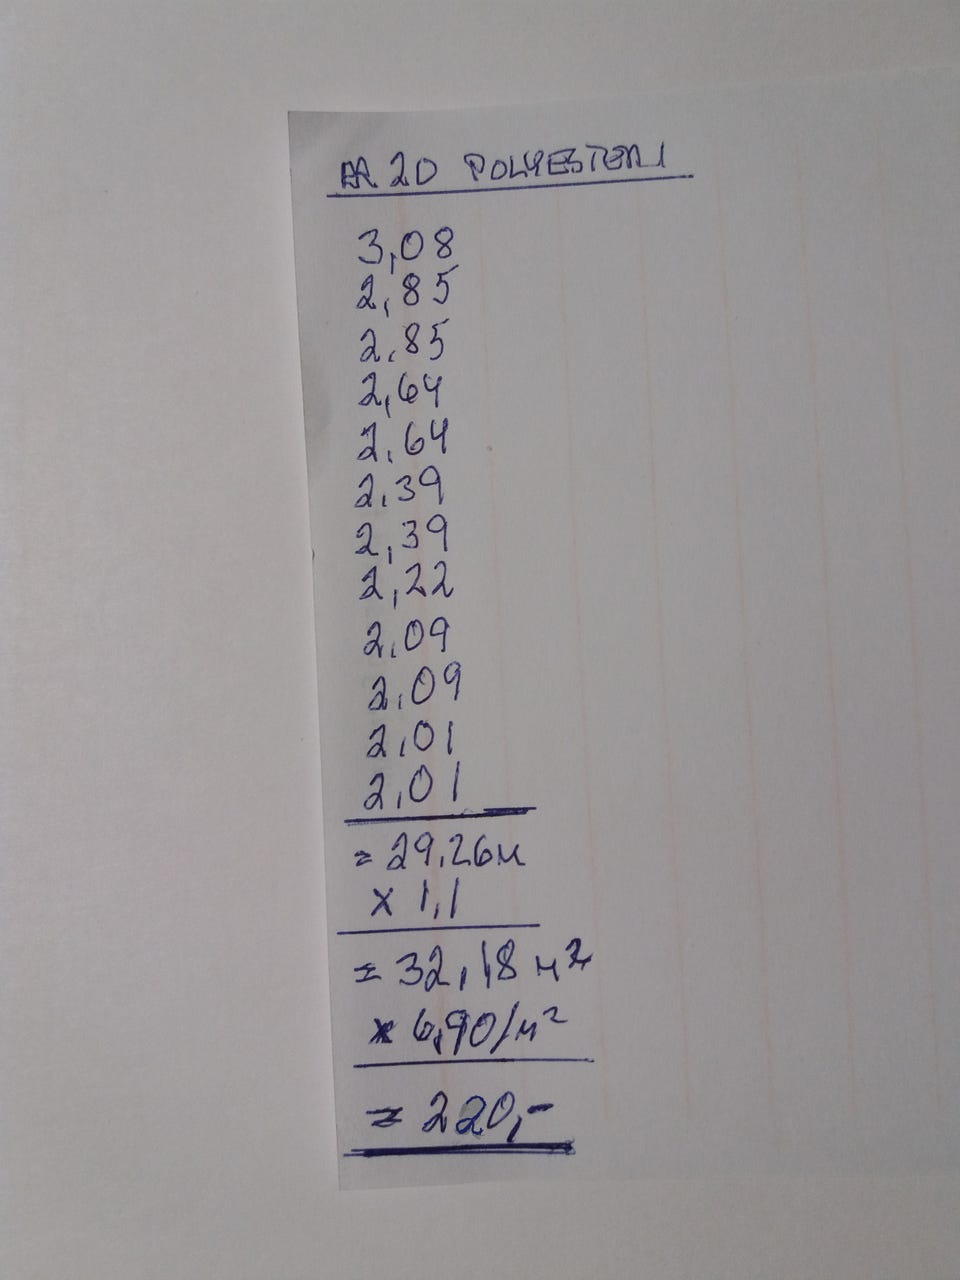 20 POLYESTER
3,08
2,85
2,85
2,64
2,64
2,39
2,39
2,22
2,09
2,09
2,01
2,01
= 29,26м
x 1,1
= 32,18 м²
x 6,90/м²
= 220,-